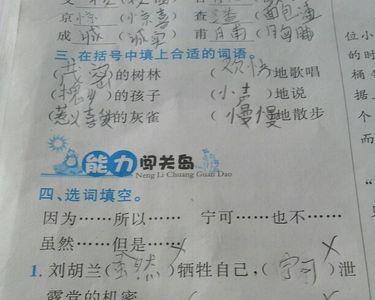 京惊(惊喜) 查渣(面包渣)
成诚(诚实) 甫(胸脯)
三、在括号中填上合适的词语。
(茂密)的树林 (欢快)地歌唱
()的孩子 (小声)地说
(惹人喜爱)的灰雀 (慢慢)地散步
能力闯关岛
Neng Li Chuang Guan Dao
四、选词填空。
因为……所以…… 宁可……也不……
虽然……但是……
1. 刘胡兰(虽然)牺牲自己,(宁可)泄
露党的机密
位小
的时
桶
个